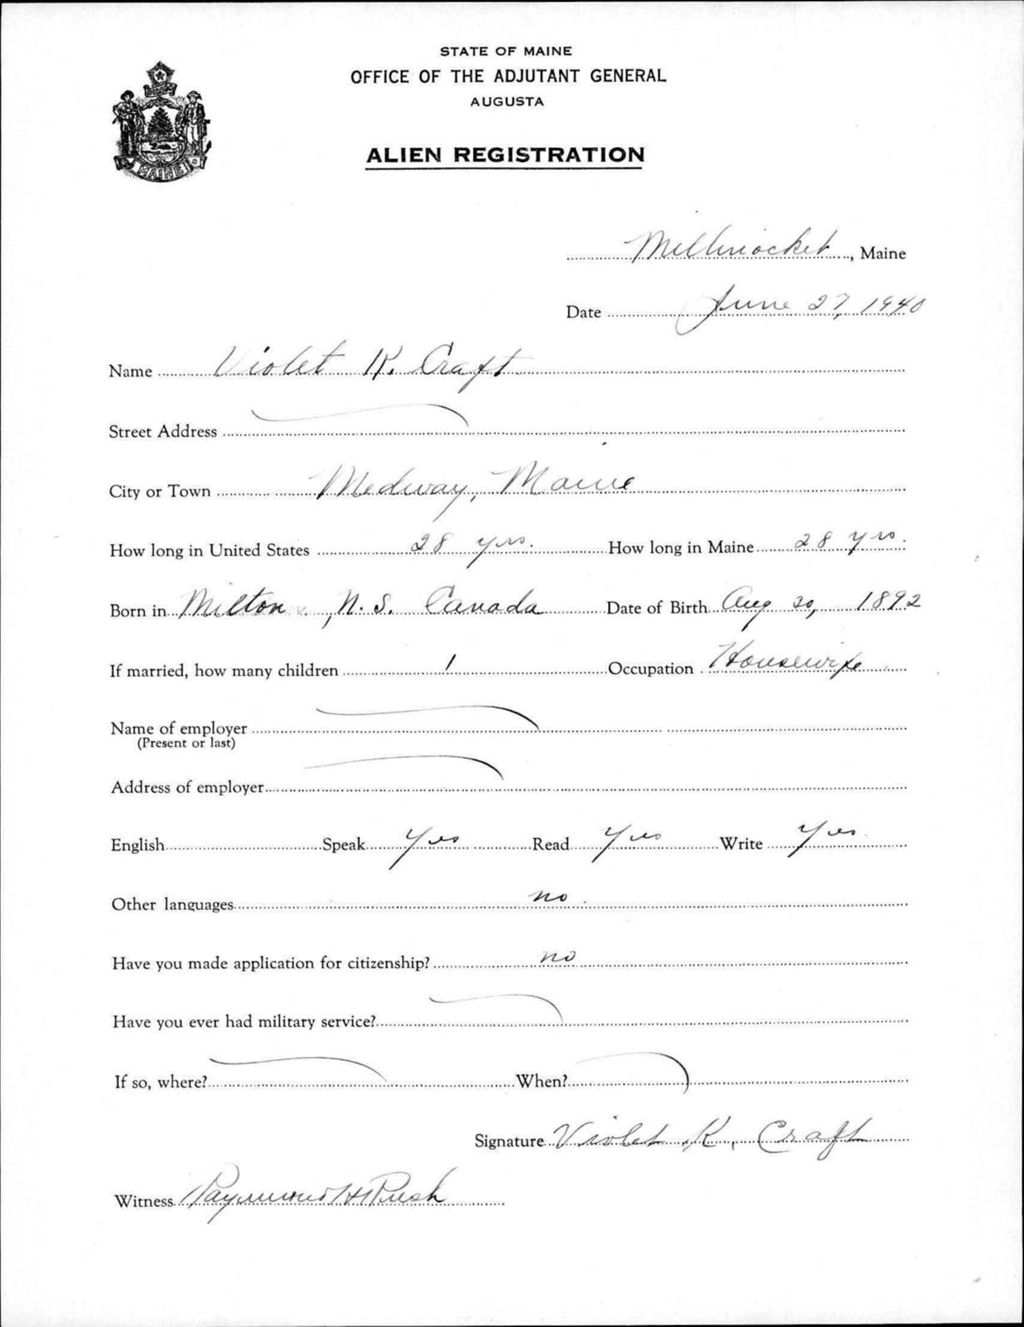 STATE OF MAINE
OFFICE OF THE ADJUTANT GENERAL
AUGUSTA
ALIEN REGISTRATION
MAINE
Millinocket, Maine
Date June 27, 1940
Name Violet K. Craft
Street Address
City or Town Medway, Maine
How long in United States 28 yrs. How long in Maine 28 yrs.
Born in Milton, N. S. Canada Date of Birth Aug 30, 1892
If married, how many children 1 Occupation Housewife
Name of employer
(Present or last)
Address of employer
English Speak Yes Read Yes Write Yes
Other languages no
Have you made application for citizenship? no
Have you ever had military service?
If so, where? When?
Signature Violet K. Craft
Witness Raymond H Rush